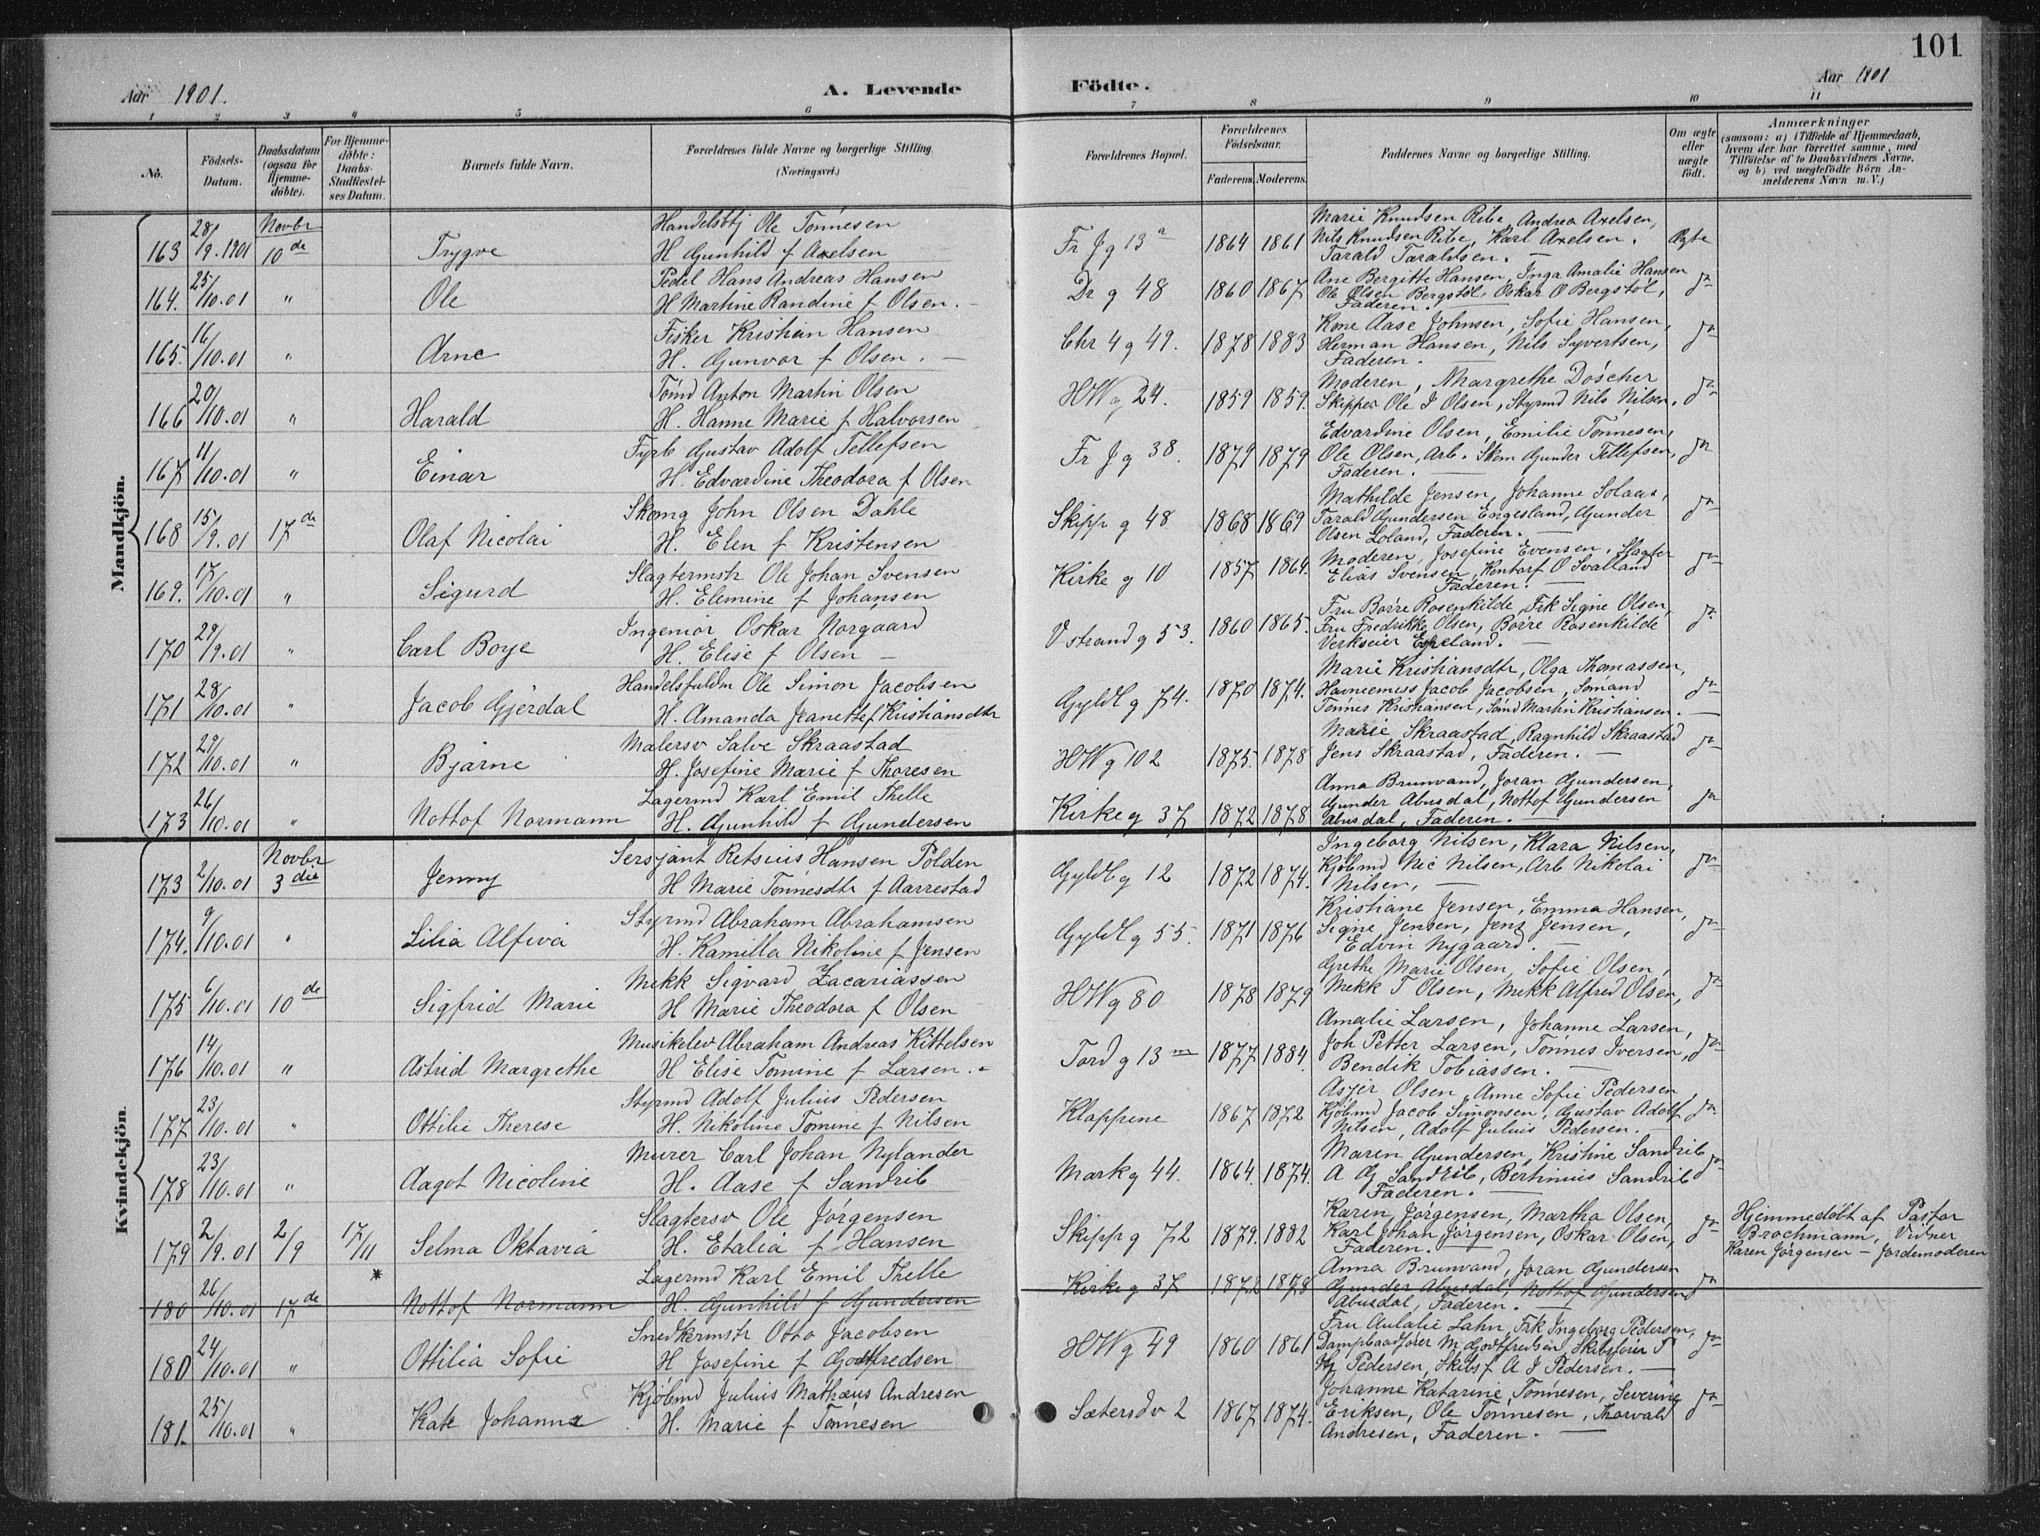 101
Aar 1901.
A. Levende
Födte.
Aar 1901
1 2 3 4 5 6 7 8 9 10 11
No.
Födsels-
Datum.
Daabsdatum
(ogsaa for
Hjemme-
döbte).
For Hjemme-
döbte:
Daabs-
Stadfæstel-
ses Datum.
Barnets fulde Navn.
Forældrenes fulde Navne og borgerlige Stilling.
(Næringsvei.)
Forældrenes Bopæl.
Forældrenes
Födselsaar.
Faderens. Moderens.
Faddernes Navne og borgerlige Stilling.
Om ægte
eller
uægte
födt.
Anmærkninger
(saasom: a) i Tilfælde af Hjemmedaab,
hvem der har forrettet samme, med
Tilföielse af to Daabsvidners Navne,
og b) ved uægtefödte Börn An-
melderens Navn m. V.)
Mandkjön.
163 28/9. 1901 Novbr 10de Trygve
Handelsbtj Ole Tønnesen
H Gunhild f Axelsen
Fr J g 13a 1864 1861
Marie Knudsen Ribe, Andrea Axelsen,
Nils Knudsen Ribe, Karl Axelsen.
Tarald Taraldsen. —
Ægte
164. 25/10.01 " Ole
Pedel Hans Andreas Hansen
H Martine Randine f Olsen. —
Dr g 48 1860 1867
Ane Bergitte Hansen, Inga Amalie Hansen
Ole Olsen Bergstøl, Oskar O Bergstøl,
Faderen.
do
165. 16/10.01 " Arne
Fisker Kristian Hansen
H. Gunvor f Olsen. —
Chr 4 g 49. 1878 1883
Kone Aase Johnsen, Sofie Hansen,
Herman Hansen, Nils Syvertsen,
Faderen. —
do
166 20/10.01 " Harald
Tømd Anton Martin Olsen
H. Hanne Marie f Halvorsen
HW g 24. 1859 1859.
Moderen, Margrethe Döscher
Skipper Ole J Olsen, Styrmd Nils Nilsen.
do
167 11/10.01 " Einar
Fyrb Gustav Adolf Tellefsen
H. Edvardine Theodora f Olsen
Fr J g 38. 1879 1879
Edvardine Olsen, Emilie Tønnesen,
Ole Olsen, Arb. Skom Gunder Tellefsen,
Faderen. —
do
168 15/9.01 17de Olaf Nicolai
Skomg John Olsen Dahle
H. Elen f Kristensen
Skipp g 48 1868 1869
Mathilde Jensen, Johanne Solaas,
Tarald Gundersen Engesland, Gunder
Olsen Loland, Faderen. —
do
169. 17/10.01 " Sigurd
Slagtermstr Ole Johan Svensen
H. Elemine f Johansen
Kirke g 10 1857 1864.
Moderen, Josefine Evensen, Slagter
Elias Svensen, Kontorf O Svalland
Faderen. —
do
170 29/9.01 " Carl Boye
Ingeniør Oskar Norgaard
H. Elise f Olsen —
V strand g 53. 1860 1865.
Fru Børre Rosenkilde, Frk Signe Olsen,
Fru Fredrikke Olsen, Børre Rosenkilde
Verkseier Espeland. —
do
171 28/10.01 " Jacob Gjerdal
Handelsfuldm Ole Simon Jacobsen
H. Amanda Jeanette f Kristiansdtr
Gyldl g 74. 1870 1874.
Marie Kristiansdtr, Olga Thomassen,
Havneemiss Jacob Jacobsen, Sømand
Tønnes Kristiansen, Sømd Martin Kristiansen. —
do
172 29/10.01 " Bjarne
Malersv Salve Skraastad
H. Josefine Marie f Thoresen
HW g 102 1875. 1878
Marie Skraastad, Ragnhild Skraastad
Jens Skraastad, Faderen. —
do
173 26/10.01 " Nottof Normann
Lagermd Karl Emil Thelle
H. Gunhild f Gundersen
Kirke g 37 1872 1878
Anna Brunvand, Joran Gundersen,
Gunder Abusdal, Nottof Gundersen
Abusdal, Faderen. —
do
Kvindekjön.
173 2/10.01 Novbr 3die Jenny
Sersjant Retsius Hansen Polden
H Marie Tønnesdtr f Aarrestad
Gyldl g 12 1872 1874.
Ingeborg Nilsen, Klara Nilsen,
Kjøbmd Nic Nilsen, Arb Nikolai
Nilsen, —
do
174. 9/10.01 " Lilia Alfiva
Styrmd Abraham Abrahamsen
H. Kamilla Nikoline f Jensen
Gyldl g 55. 1871 1876
Kristiane Jensen, Emma Hansen,
Signe Jensen, Jens Jensen,
Edvin Nygaard. —
do
175 6/10.01 10de Sigfrid Marie
Mekk Sigvard Zacariassen
H Marie Theodora f Olsen
HW g 80 1878 1879
Grethe Marie Olsen, Sofie Olsen,
Mekk T Olsen, Mekk Alfred Olsen,
do
176 14/10.01 " Astrid Margrethe
Musikelev Abraham Andreas Kittelsen
H Elise Tomine f Larsen. —
Tord g 13 1877 1884.
Amalie Larsen, Johanne Larsen,
Joh Petter Larsen, Tønnes Iversen,
Bendik Tobiassen. —
do
177 23/10.01 " Ottilie Therese
Styrmd Adolf Julius Pedersen
H. Nikoline Tomine f Nilsen
Klappene 1867 1872
Asjer Olsen, Anne Sofie Pedersen
Kjøbmd Jacob Simonsen, Gustav Adolf
Nilsen, Adolf Julius Pedersen. —
do
178 23/10.01 " Aagot Nicoline
Murer Carl Johan Nylander
H. Aase f Sandrib
Mark g 44. 1864. 1874.
Maren Gundersen, Kristine Sandrib
A G Sandrib, Bertinius Sandrib
Faderen. —
do
179 2/9.01 2/9 17/11 Selma Oktavia
Slagtersv Ole Jørgensen
H. Etalia f Hansen
Skipp g 72 1879. 1882
Karen Jørgensen, Martha Olsen,
Karl Johan Jørgensen, Oskar Olsen,
Faderen. —
do
Hjemmedøbt af Pastor
Brochmann, Vidner
Karen Jørgensen — Jordemoderen
*
180 26/10.01 17de Nottof Normann
Lagermd Karl Emil Thelle
H. Gunhild f Gundersen
Kirke g 37 1872 1878
Anna Brunvand, Joran Gundersen
Gunder Abusdal, Nottof Gundersen
Abusdal, Faderen. —
do
180 24/10.01 " Ottilia Sofie
Snedkermstr Otto Jacobsen
H Josefine f Godtfredsen
HW g 49 1860 1861
Fru Aulalie Lahn, Frk Ingeborg Pedersen,
Dampbaadfører M Godtfredsen, Skibsfører T
Hj Pedersen, Skibsf A J Pedersen. —
do
181. 25/10.01 " Kate Johanne
Kjøbmd Julius Mathæus Andresen
H. Marie f Tønnesen
Sætersdv 2 1867 1874.
Johanne Katarine Tønnesen, Severine
Eriksen, Ole Tønnesen, Thorvald
Andresen, Faderen. —
do